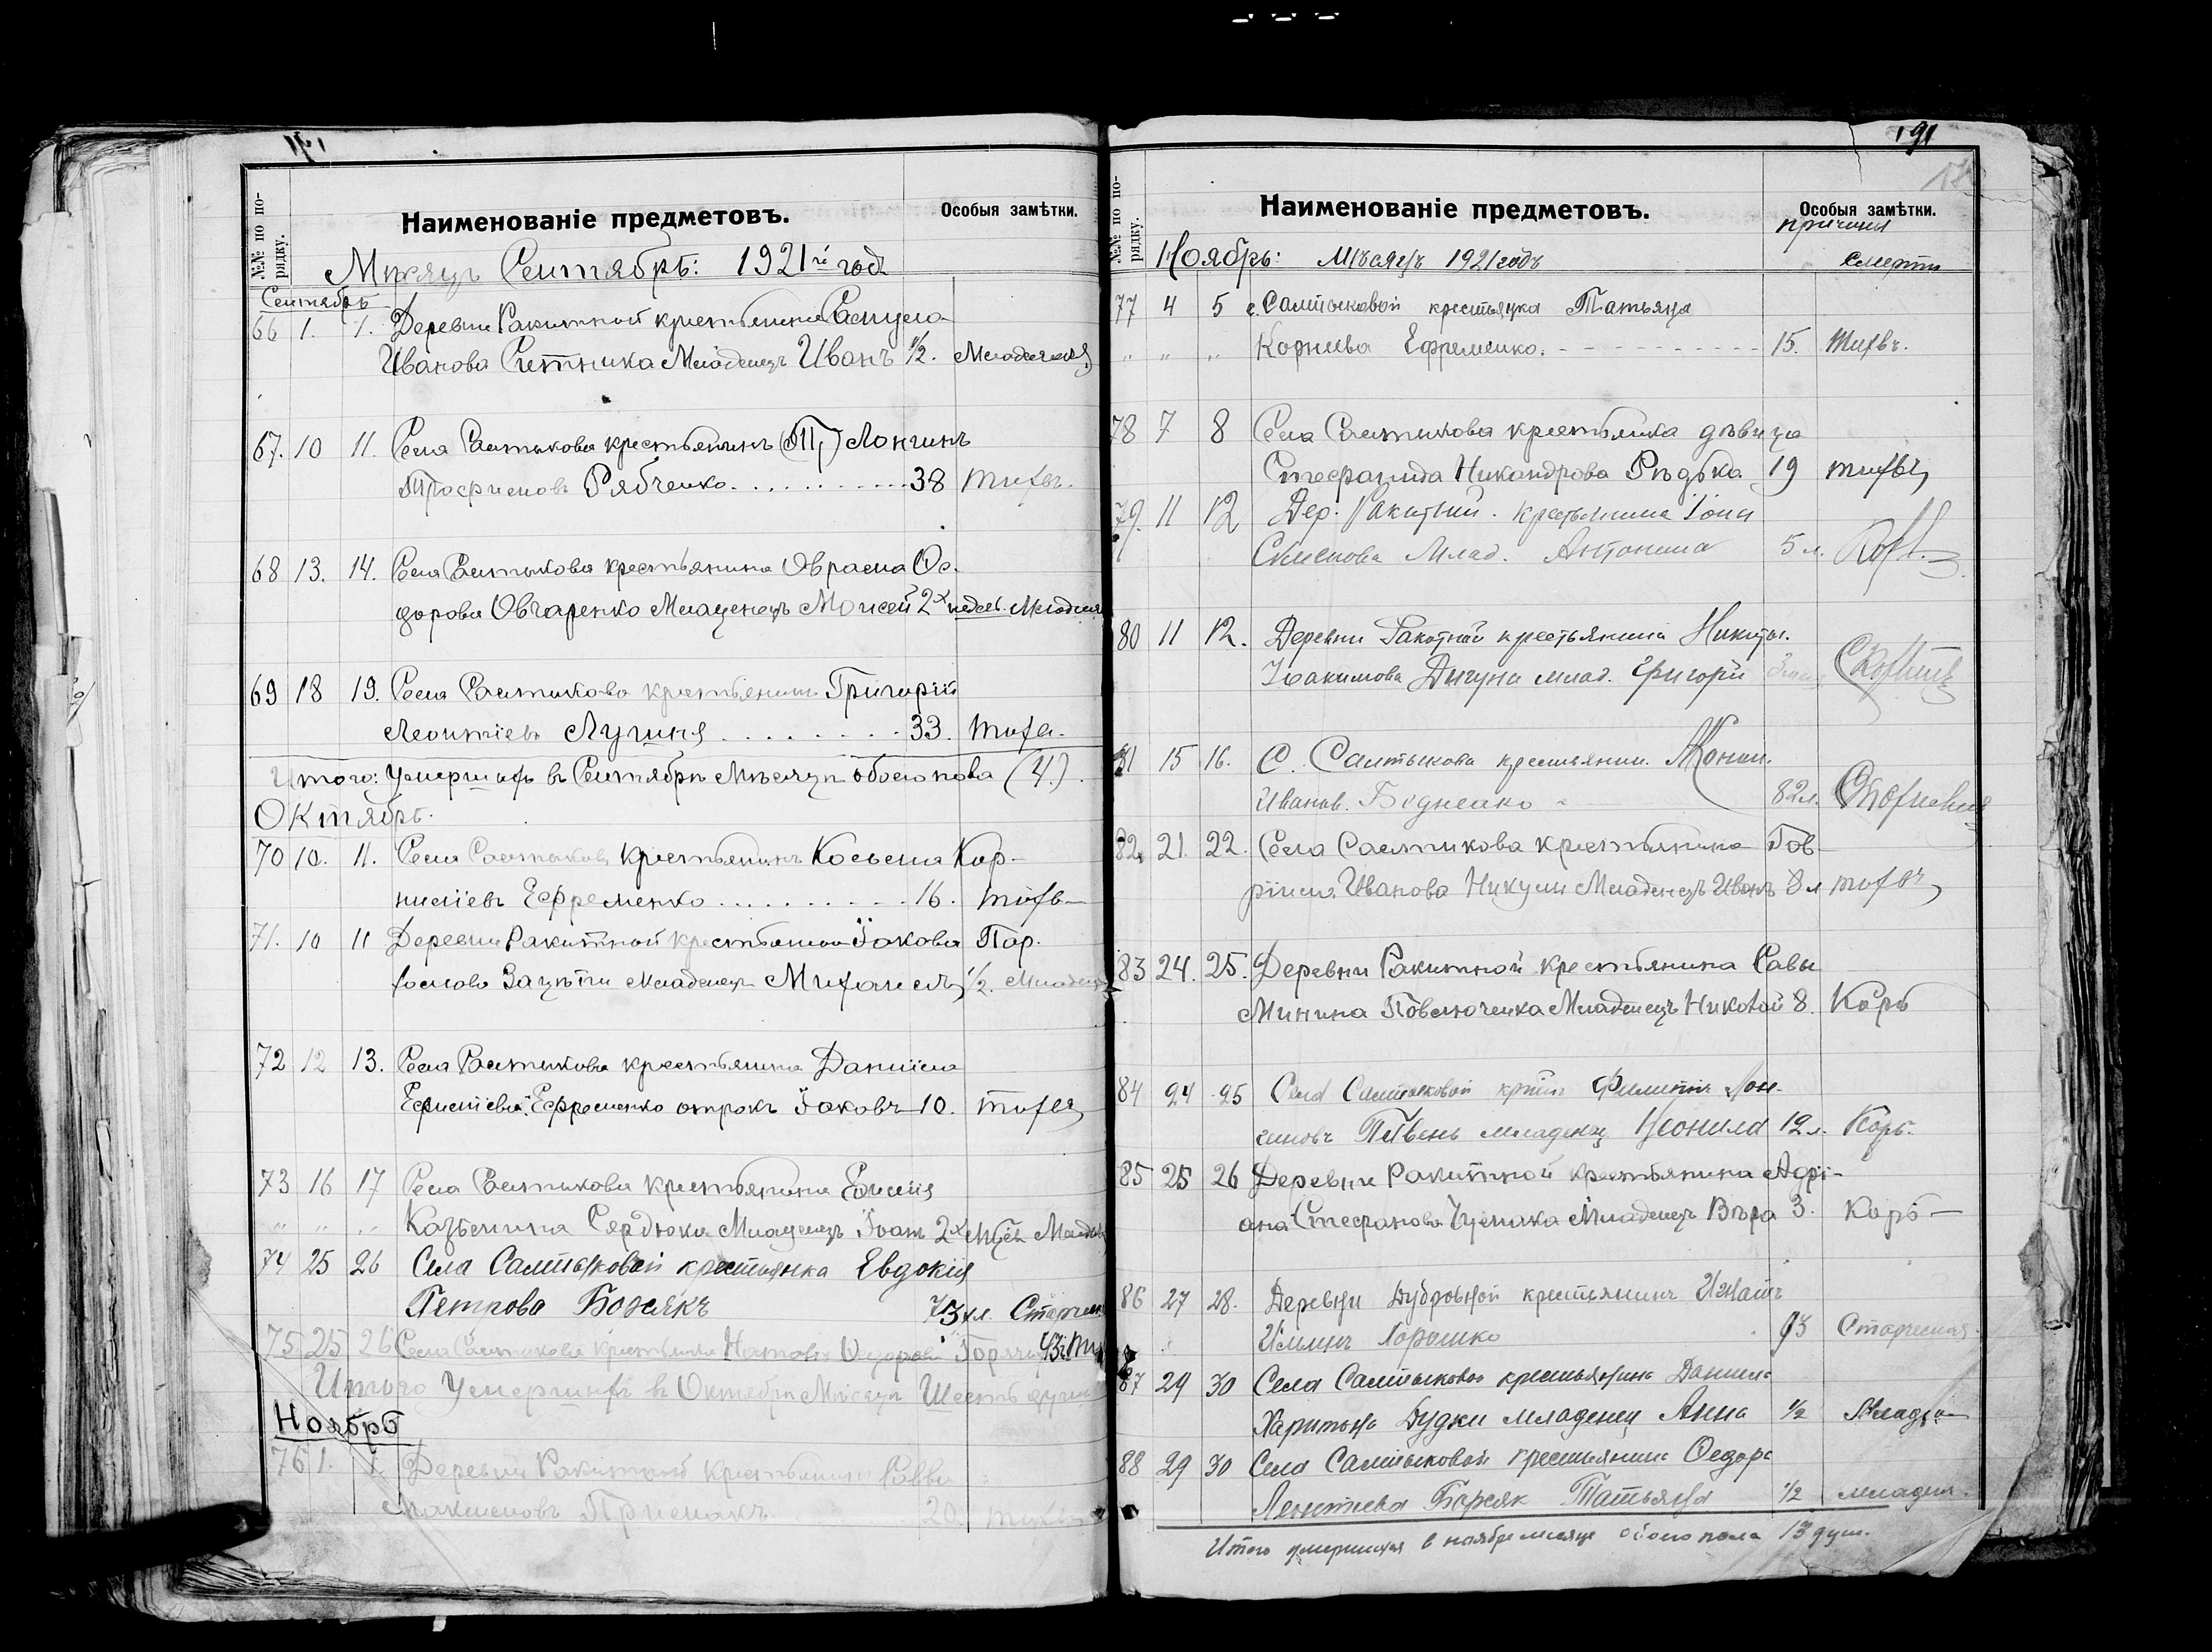 191
№№ по по-
рядку.
Наименованіе предметовъ.
Особыя замѣтки.
Мѣсяцъ Сентябрь: 1921й годъ
Сентябрь
66 1. 1. Деревни Ракитной крестьянина Самуила
Иванова Ситника Младенец Иванъ 1/2.
67. 10 11. Села Салтыкова крестьянинъ Лонгинъ
Трофимовъ Рябченко. 38 тифъ.
68 13. 14. Села Салтыкова крестьянина Аврама Ѳе-
дорова Овчаренко Младенецъ Моисей 2х недел.
69 18 19. Села Салтыкова крестьянинъ Григорій
Леонтіевъ Лучина 33. тифъ.
Итого: Умершихъ въ Сентябрѣ Мѣсяцѣ обоего пола (4.)
Октябрь.
70 10. 11. Села Салтыкова крестьянинъ Косьма Кор-
ниліевъ Ефременко 16. тифъ
71. 10 11 Деревни Ракитной крестьянина Іакова Пар-
Младенецъ Михаилъ 1/2.
72 12 13. Села Салтыкова крестьянина Даніила
Ефременко отрокъ Іаковъ 10. тифъ
73 16 17 Села Салтыкова крестьянина
" " " Козьмина Сердюка Младенецъ Іоанъ 2х
74 25 26 Села Салтыковой крестьянка Евдокія
Петрова Божякъ 73 л.
75. 25 26 Села Салтыкова крестьянин
Итого Умершихъ въ Октябрѣ Мѣсяцѣ Шесть душъ
Ноябрь
76 1. 1. Деревни Ракитной крестьянинъ Савва
Максимовъ Приймакъ 20. тифъ
191
№№ по по-
рядку.
Наименованіе предметовъ.
Особыя замѣтки.
причина
смерти
Ноябрь: Мѣсяцъ 1921 годъ
77 4 5 с. Салтыковой крестьянка Татьяна
" " " Корнива Ефременко. 15. Тифъ.
78 7 8 Села Салтыкова крестьянка дѣвица
Стефанида Никандрова Рѣдька 19 тифъ
79. 11 12 Дер. Ракитной. крестьянина Іоны
Семенова Млад. Антонина 5 л.
80 11 12. Деревни Ракитной крестьянина Никиты.
Іоакимова Дигуна млад. Григорій
81 15 16. С. Салтыкова крестьянин.
Иванов. Бедненко 82 л.
82. 21. 22. Села Салтыкова крестьянина Гав-
ріила Иванова Никулы Младенецъ Иванъ 8 л тифъ
83 24. 25. Деревни Ракитной крестьянина Савы
Минина Павлюченка Младенецъ Николай 8. Корь
84 24 25 Села Салтыковой Филиппъ Лон-
гиновъ Пивень младенец Неонила 12 л. Корь.
85 25 26 Деревни Ракитной крестьянина Адрі-
ана Стефанова Младенецъ Вѣра 3. Корь
86 27 28. Деревни Дубровной крестьянинъ Игнатъ
Ильинъ Горошко 93
87 29 30 Села Салтыковой крестьянина Данила
Харитона Будки младенец Анна 1/2
88 29 30 Села Салтыковой крестьянина Ѳедора
Леонтиева Божяк Татьяна 1/2
Итого умершихъ в ноябре месяце обоего пола 13 душ.